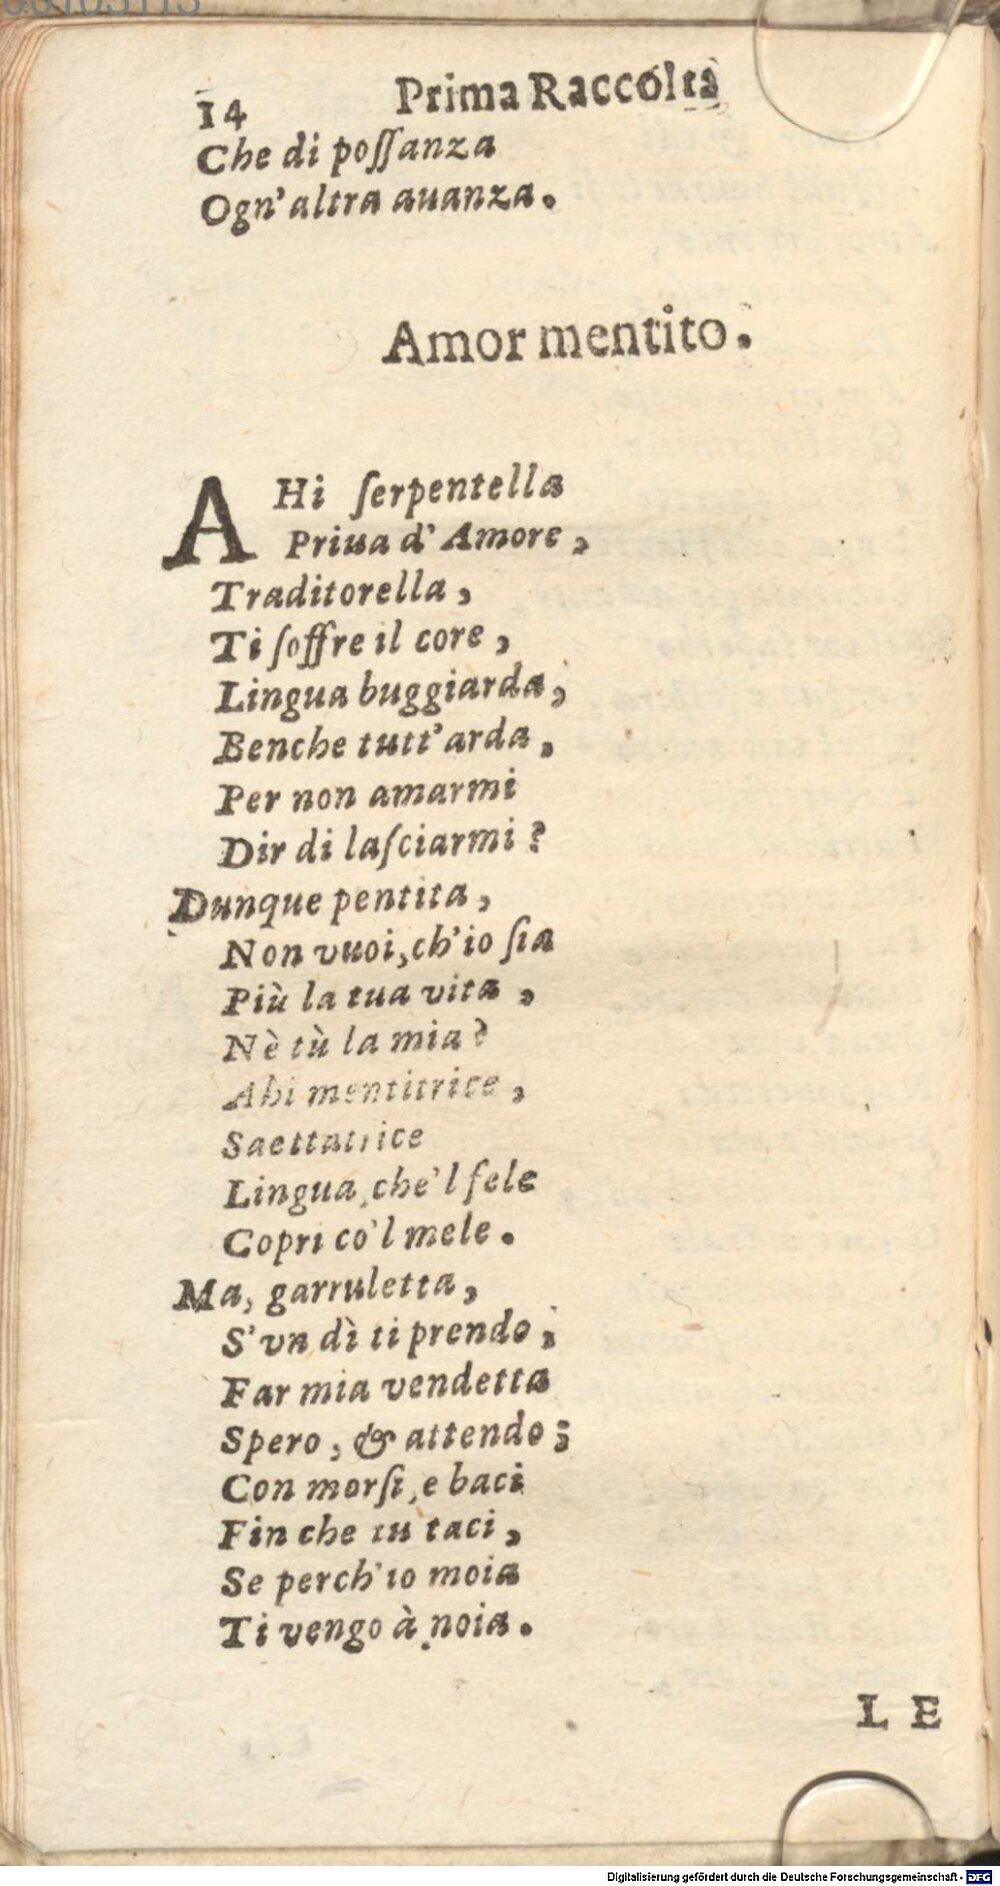 14 Prima Raccolta
Che di poſſanza
Ogn'altra auanza.
Amor mentito.
AHi ſerpentella
Priua d'Amore,
Traditorella,
Ti ſoffre il core,
Lingua buggiarda,
Benche tutt'arda,
Per non amarmi
Dir di laſciarmi?
Dunque pentita,
Non vuoi, ch'io ſia
Più la tua vita,
Nè tù la mia?
Ahi mentitrice,
Saettatrice
Lingua, che'l fele
Copri co'l mele.
Ma, garruletta,
S'vn dì ti prendo,
Far mia vendetta
Spero, & attendo;
Con morſi, e baci
Fin che tu taci,
Se perch'io moia
Ti vengo à noia.
LE
Digitalisierung gefördert durch die Deutsche Forschungsgemeinschaft - DFG